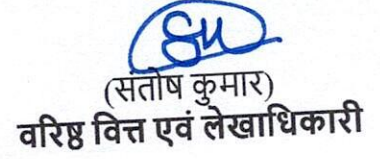 (सतोष कुमार)
वरिष्ठ वित्त एवं लेखाधिकारी